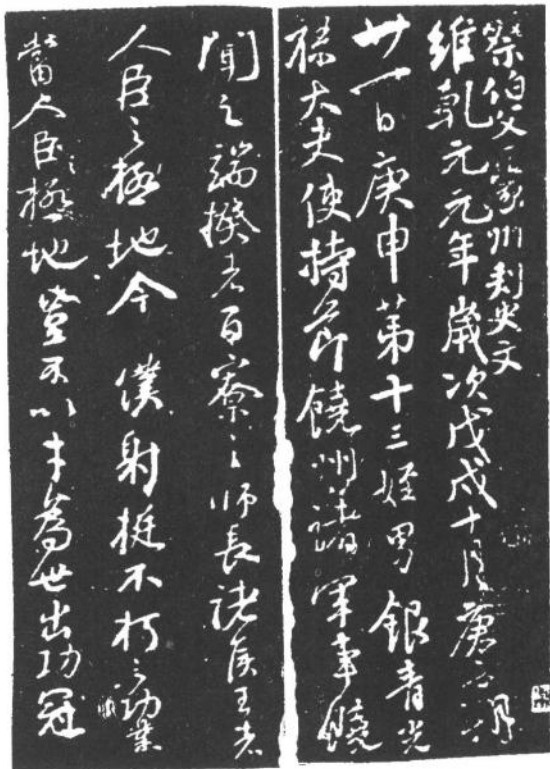 祭伯父豪州刺史文
維乾元元年歲次戊戌十月庚子朔
廿一日庚申第十三姪男銀青光
祿大夫使持節饒州諸軍事饒
聞之端揆者百寮之師長諸侯王者
人臣之極地今僕射挺不朽之功業
當人臣極地豈不以才為世出功冠